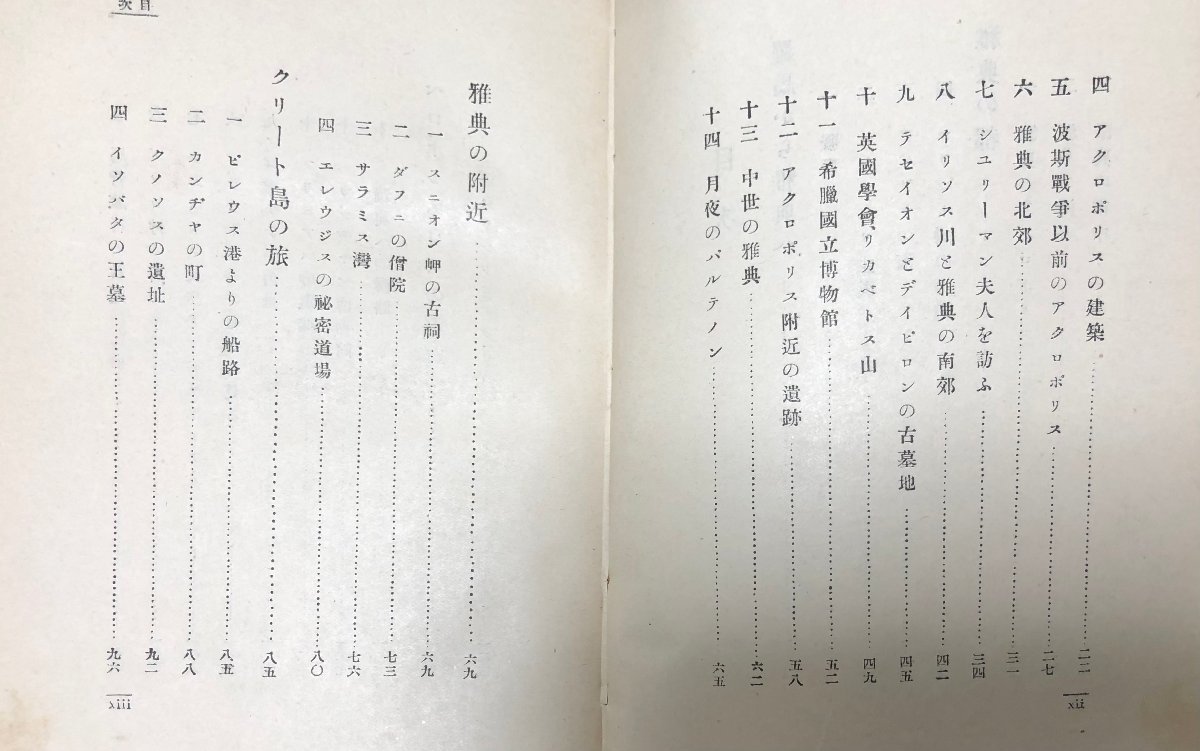 四 アクロポリスの建築……二二
五 波斯戰爭以前のアクロポリス……二七
六 雅典の北郊……三一
七 シユリーマン夫人を訪ふ……三四
八 イリソス川と雅典の南郊……四二
九 テセイオンとデイピロンの古墓地……四五
十 英國學會、リカベトス山……四九
十一 希臘國立博物館……五二
十二 アクロポリス附近の遺跡……五八
十三 中世の雅典……六二
十四 月夜のパルテノン……六五
xii
目次
雅典の附近……六九
一 スニオン岬の古祠……六九
二 ダフニの僧院……七三
三 サラミス灣……七六
四 エレウジスの祕密道場……八〇
クリート島の旅……八五
一 ピレウス港よりの船路……八五
二 カンヂヤの町……八八
三 クノソスの遺址……九二
四 イソパタの王墓……九六
xiii